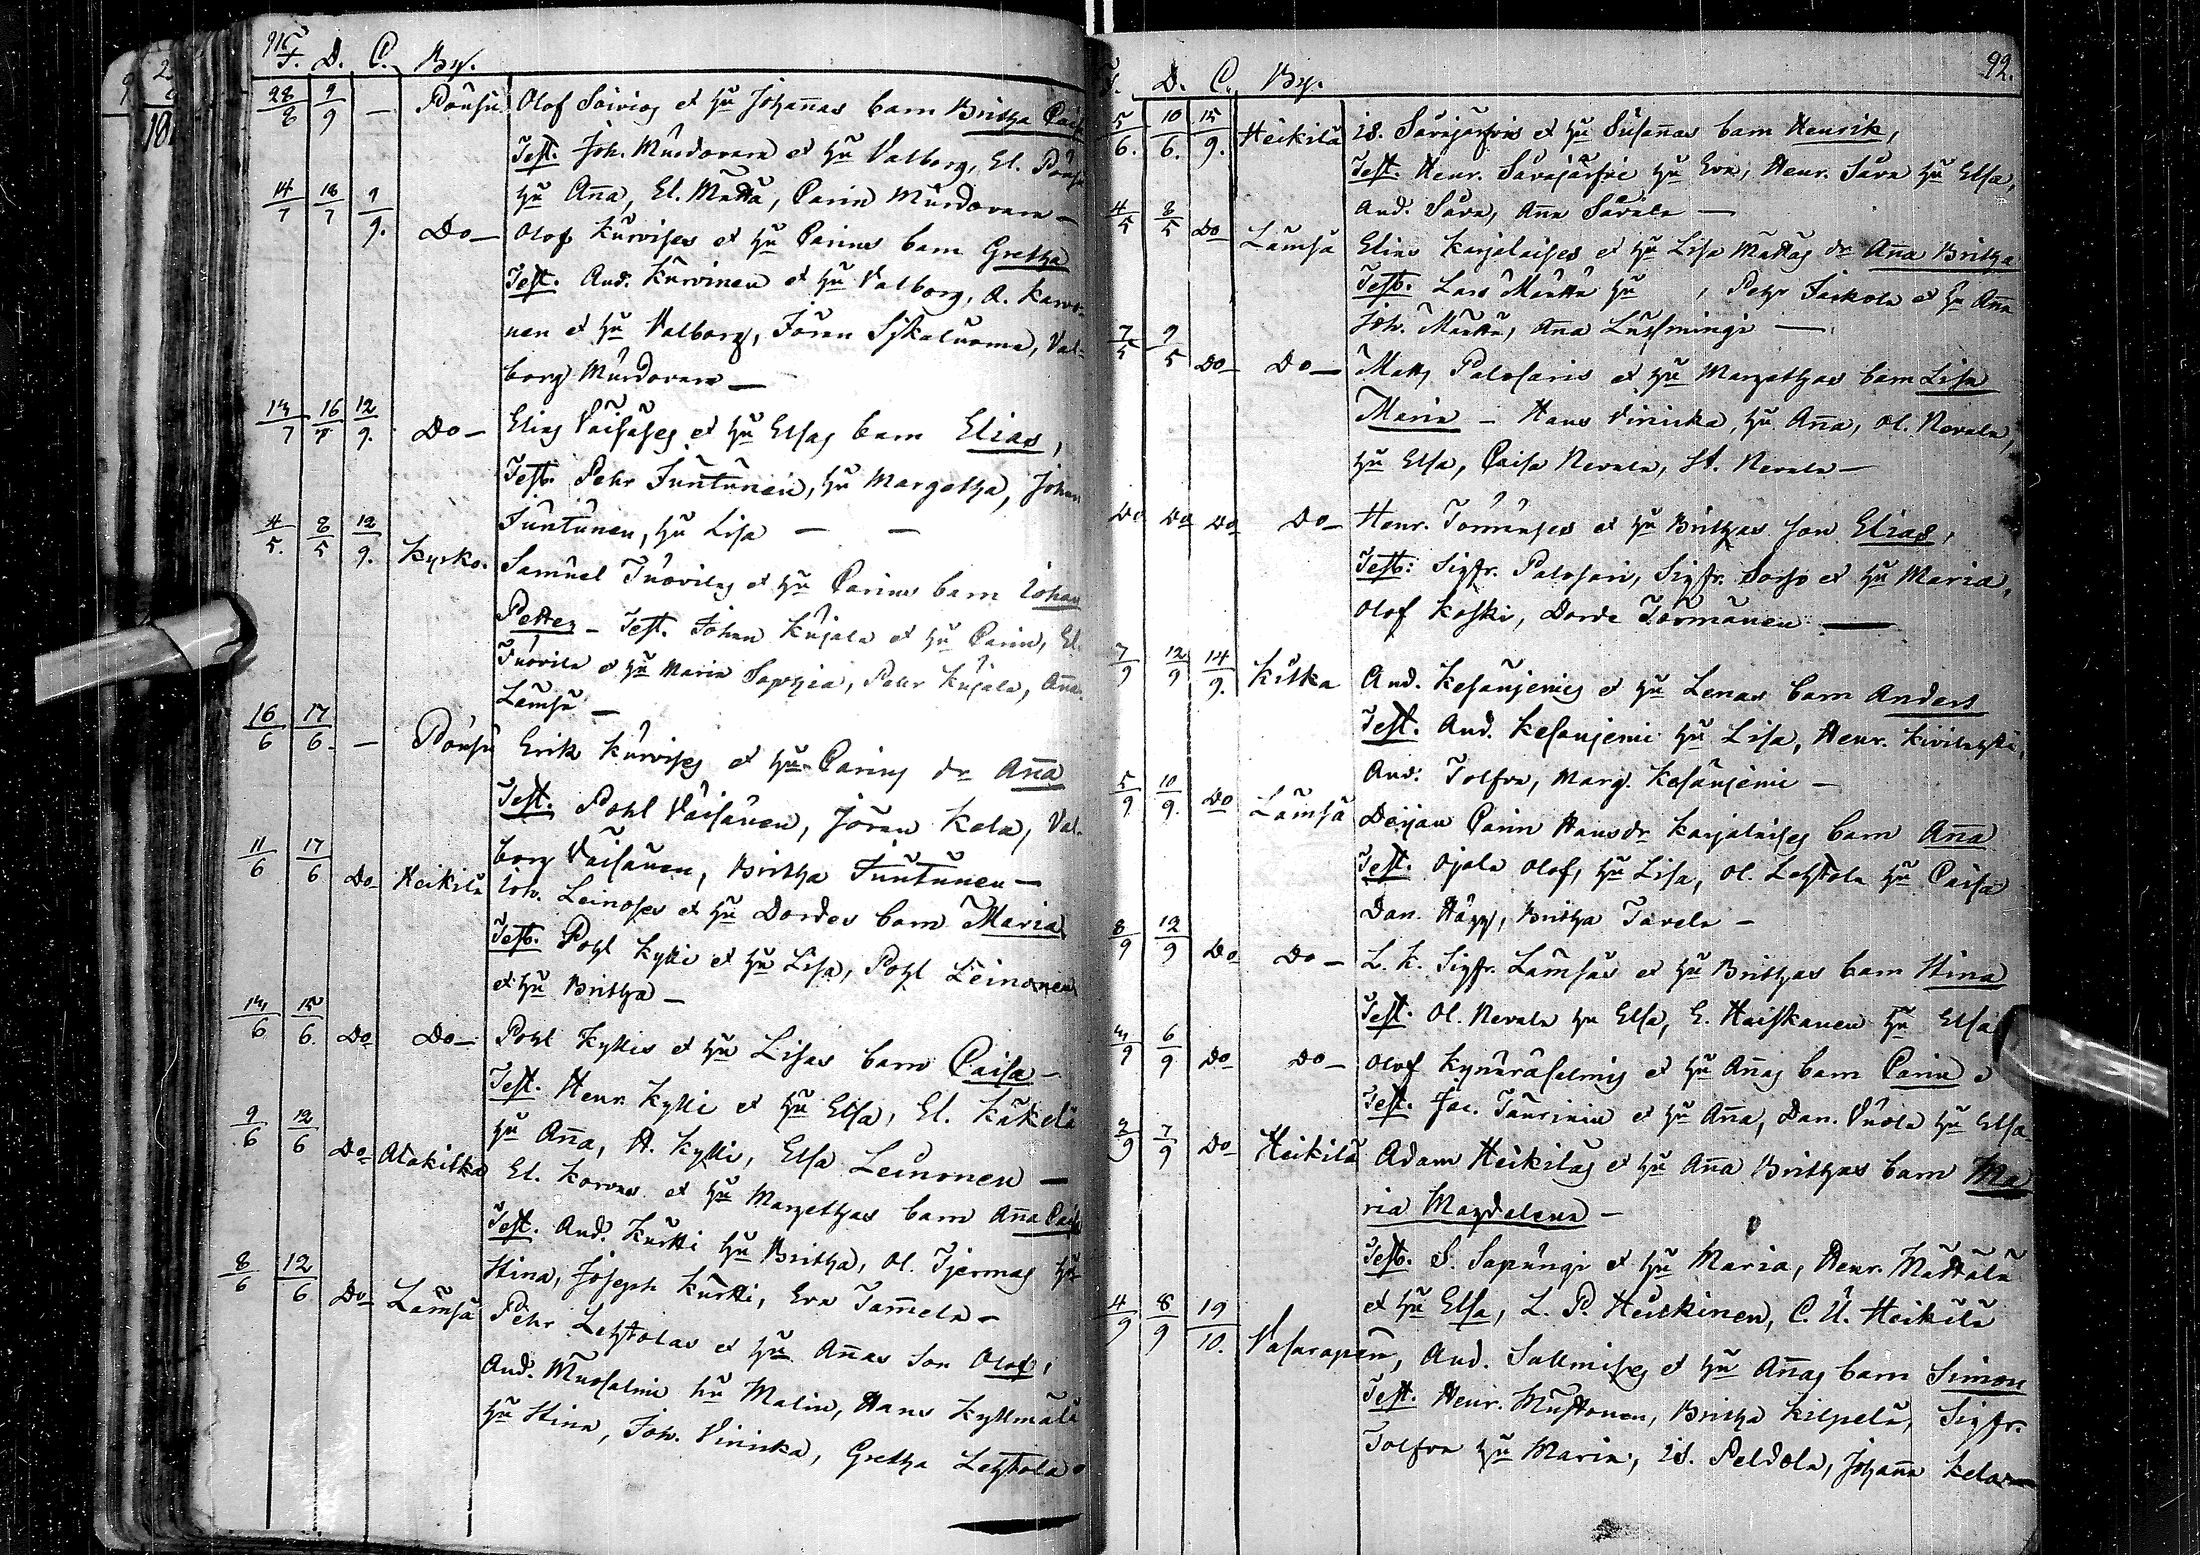 91.
F. D. C. By.
28/8 9/9 — Pousu Olof Soivios et hu Johannas barn Britha Caisa
Test. Joh. Murdovara et hu Valborg, El. Pousu
hu Anna, El. Mattä, Carin Murdovara —
14/7 18/7 9/9. Do — Olof Kurvises et hu Carins barn Gretha
Test. And. Kurvinen et hu Valborg, A. Karvo-
nen et hu Valborg, Jöran Sykaluoma, Val-
borg Murdovara —
14/7 16/7 12/9. Do — Elias Väisäses et hu Elsas barn Elias,
Test. Pehr Juntunen, hu Margetha, Johan
Juntunen, hu Lisa — —
4/5. 8/5 12/9. Kyrko. Samuel Tuovilas et hu Carins barn Johan
Petter — Test. Johan Kujala et hu Carin, El.
Tuovila et hu Maria Sophia, Pehr Kujala, Anna
Lämsä —
16/6 17/6. — Pousu Erik Kurvises et hu Carins dr Anna
Test. Pohl Väisänen, Jöran Kela, Val-
borg Väisänen, Britha Juntunen —
11/6 17/6 Do Heikilä Joh. Leinoses et hu Dordes barn Maria
Test. Pohl Kylli et hu Lisa, Pohl Leinonen
et hu Britha —
14/6 15/6. Do Do — Pohl Kyllis et hu Lisas barn Caisa —
Test. Henr. Kylli et hu Elsa, El. Käkelä
hu Anna, H. Kylli, Elsa Leinonen —
9/6 12/6 Do Alakitka El. Korvas et hu Margethas barn Anna Caisa
Test. And. Kurtti hu Britha, Ol. Tjermas hu
Stina, Joseph Kurtti, Eva Tammela —
8/6 12/6 Do Lämsä Pehr Lehtolas et hu Annas son Olof,
And. Muosalmi hu Malin, Hans Kyllmälä
hu Stina, Joh. Vinicka, Gretha Lehtola
92.
F. D. C. By.
5/6. 10/6. 15/9. Heikilä Is. Säväjärfvis et hu Susannas barn Henrik,
Test. Henr. Säväjärfvi hu Eva, Henr. Säva hu Elsa,
And. Säva, Anna Säväla —
4/5 8/5 Do Lämsä Elias Karjalaises et hu Lisa Mattas dr Anna Britha
Test. Lars Määttä hu , Petr Jackola et hu Anna
Joh. Määttä, Anna Lussmingi —
7/5 9/5 Do Do — Matts Palosaris et hu Margethas barn Lisa
Maria — Hans Vinicka, hu Anna, Ol. Nevala,
hu Elsa, Caisa Nevala, St. Nevala —
Do Do Do Do — Henr. Törmänses et hu Brithas son Elias,
Test: Sigfr. Palosari, Sigfr. Sorso et hu Maria,
Olof Koski, Dorde Törmänen —
7/9 12/9 14/9. Kitka And. Kesäniemis et hu Lenas barn Anders
Test. And. Kesäniemi hu Lisa, Henr. Kivilahti,
And. Tolfva, Marg. Kesäniemi —
5/9 10/9. Do Lämsä Deijan Carin Hansdr Karjalaises barn Anna
Test. Ojala Olof, hu Lisa, Ol. Lehtola hu Caisa
Dan. Hägg, Britha Tavela —
8/9 12/9 Do Do — L. K. Sigfr. Lämsäs et hu Brithas barn Stina
Test. Ol. Nevala hu Elsa, E. Haiskanen hu Elsa
4/9 6/9 Do Do — Olof Kynäräsalmis et hu Annas barn Carin
Test. Jac. Taurinin et hu Anna, Dan. Vuola hu Elsa
2/9 7/9 Do Heikilä Adam Heikiläs et hu Anna Brithas barn Ma
ria Magdalena —
Test. S. Sapungi et hu Maria, Henr. Mattala
et hu Elsa, L. P. Heickinen, C. U. Heikilä
4/9 8/9 19/10. Vasarapern, And. Sallmises et hu Annas barn Simon
Test. Henr. Mustonen, Britha Kilpelä, Sigfr.
Tolfva hu Maria, Is. Peldola, Johanna Kela —